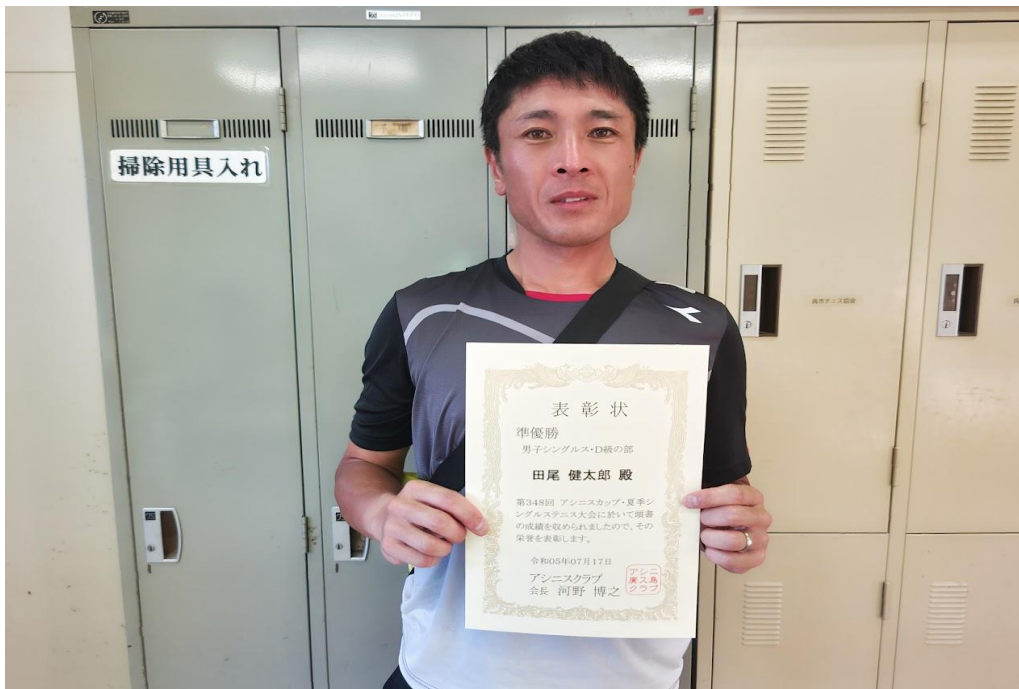 掃除用具入れ
呉市テニス協会
表彰状
準優勝
男子シングルス・D級の部
田尾 健太郎 殿
第348回 アシニスカップ・夏季シ
ングルステニス大会に於いて頭書
の成績を収められましたので、その
栄誉を表彰します。
令和05年07月17日
アシニスクラブ
会長 河野 博之
アシニ
廣ス島
クラブ